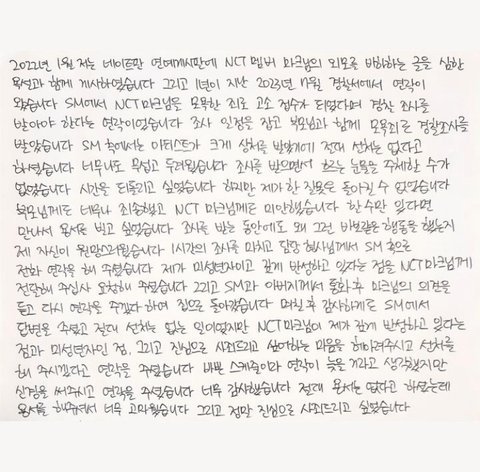 2022년 1월 저는 네이트판 연예게시판에 NCT 멤버 마크님의 외모를 비하하는 글을 심한
욕설과 함께 게시하였습니다 그리고 1년이 지난 2023년 7월 경찰서에서 연락이
왔습니다 SM에서 NCT마크님을 모욕한 죄로 고소 접수가 되었다며 경찰 조사를
받아야 한다는 연락이었습니다 조사 일정을 잡고 부모님과 함께 모욕죄로 경찰조사를
받았습니다 SM 측에서는 아티스트가 크게 상처를 받았기에 절대 선처는 없다고
하셨습니다 너무나도 무섭고 두려웠습니다 조사를 받으면서 흐르는 눈물을 주체할 수가
없었습니다 시간을 되돌리고 싶었습니다 하지만 제가 한 잘못은 돌아갈 수 없었습니다
부모님께도 너무나 죄송했고 NCT 마크님께도 미안했습니다 할 수만 있다면
만나서 용서를 빌고 싶었습니다 조사를 받는 동안에도 왜 그런 바보같은 행동을 했는지
제 자신이 원망스러웠습니다 1시간의 조사를 마치고 담당 형사님께서 SM 측으로
전화 연락을 해 주셨습니다 제가 미성년자이고 깊게 반성하고 있다는 점을 NCT마크님께
전달해 주십사 요청해 주셨습니다 그리고 SM과 아버지께서 통화 후 마크님의 의견을
듣고 다시 연락을 주신다 하여 집으로 돌아왔습니다 며칠 후 감사하게도 SM에서
답변을 주셨고 절대 선처는 없는 일이었지만 NCT마크님이 제가 깊게 반성하고 있다는
점과 미성년자인 점, 그리고 진심으로 사죄드리고 싶어하는 마음을 헤아려주시고 선처를
해 주시겠다고 연락을 주셨습니다 바쁜 스케줄이라 연락이 늦을 거라고 생각했지만
신경을 써주시고 연락을 주셨습니다 너무 감사했습니다 절대 용서는 없다고 하셨는데
용서를 해주셔서 너무 고마웠습니다 그리고 정말 진심으로 사죄드리고 싶었습니다